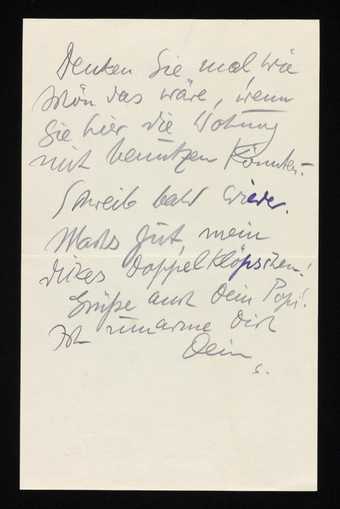 Denken Sie mal, wie
schön das wäre, wenn
Sie hier die Wohnung
mit benutzen könnten.–
Schreib bald wieder.
Machs gut, mein
dickes Doppelklöpschen!
Grüße auch Dein Papi!
Ich umarme Dich
Dein